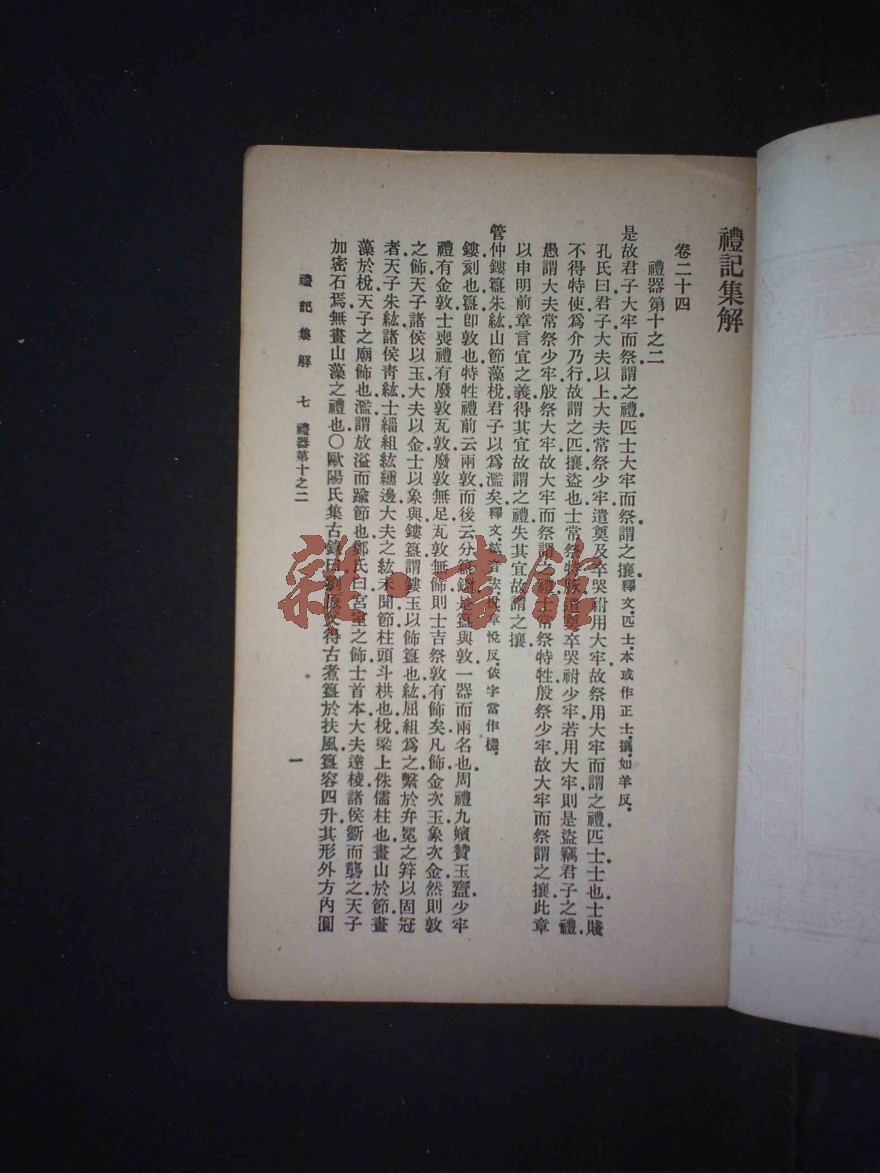 禮記集解
卷二十四
禮器第十之二
是故君子大牢而祭.謂之禮.匹士大牢而祭.謂之攘.釋文.匹士.本或作正士.攘.如羊反.
孔氏曰君子大夫以上大夫常祭少牢.遣奠及卒哭祔用大牢.故祭用大牢而謂之禮.匹士士也.士賤.
不得特使爲介乃行.故謂之匹.攘盜也.士常祭特豚.遣奠卒哭祔少牢.若用大牢.則是盜竊君子之禮.
愚謂大夫常祭少牢.殷祭大牢.故大牢而祭謂之禮.士常祭特牲.殷祭少牢.故大牢而祭謂之攘.此章
以申明前章言宜之義.得其宜故謂之禮.失其宜故謂之攘.
管仲鏤簋朱紘.山節藻梲.君子以爲濫矣.釋文.紘音.梲.章悅反.依字當作棳.
鏤刻也.簋卽敦也.特牲禮前云兩敦.而後云分簋鉶.是簋與敦一器而兩名也.周禮九嬪贊玉齍.少牢
禮有金敦.士喪禮有廢敦瓦敦.廢敦無足.瓦敦無飾.則士吉祭敦有飾矣.凡飾金次玉.象次金.然則敦
之飾.天子諸侯以玉.大夫以金.士以象與.鏤簋謂鏤玉以飾簋也.紘屈組爲之.繫於弁冕之笄以固冠
者.天子朱紘.諸侯青紘.士緇組紘纁邊.大夫之紘未聞.節柱頭斗栱也.梲梁上侏儒柱也.畫山於節.畫
藻於梲.天子之廟飾也.濫謂放溢而踰節也.鄭氏曰宮室之飾.士首本.大夫達棱.諸侯斲而礱之.天子
加密石焉.無畫山藻之禮也.〇歐陽氏集古錄曰.劉原父得古煮簋於扶風.簋容四升.其形外方內圓
禮記集解 七 禮器第十之二
一
雜·書館